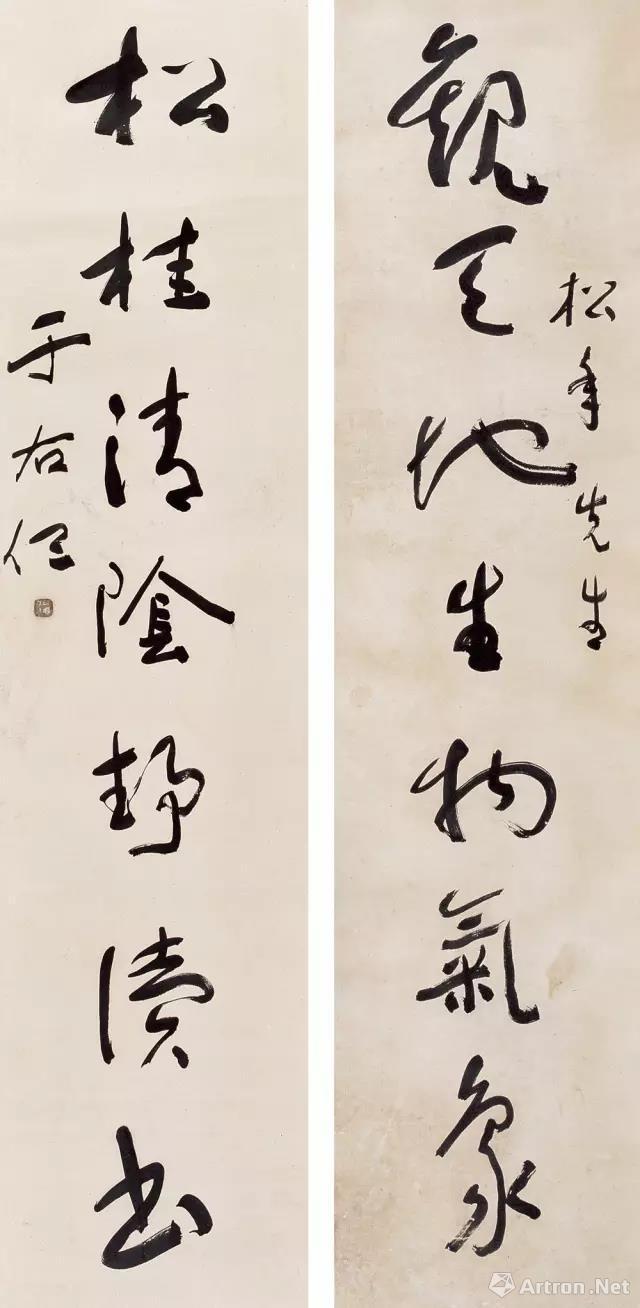 觀天地生物氣象
松年先生
松桂清陰靜讀書
于右任
Artron.Net